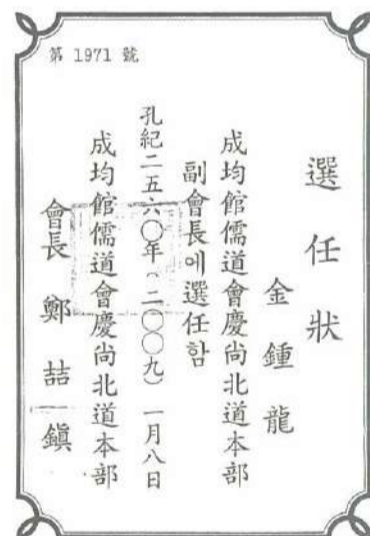 第 1971 號
選任狀
金鍾龍
成均館儒道會慶尙北道本部
副會長에選任함
孔紀二五六〇年(二〇〇九) 一月八日
成均館儒道會慶尙北道本部
會長 鄭喆鎭